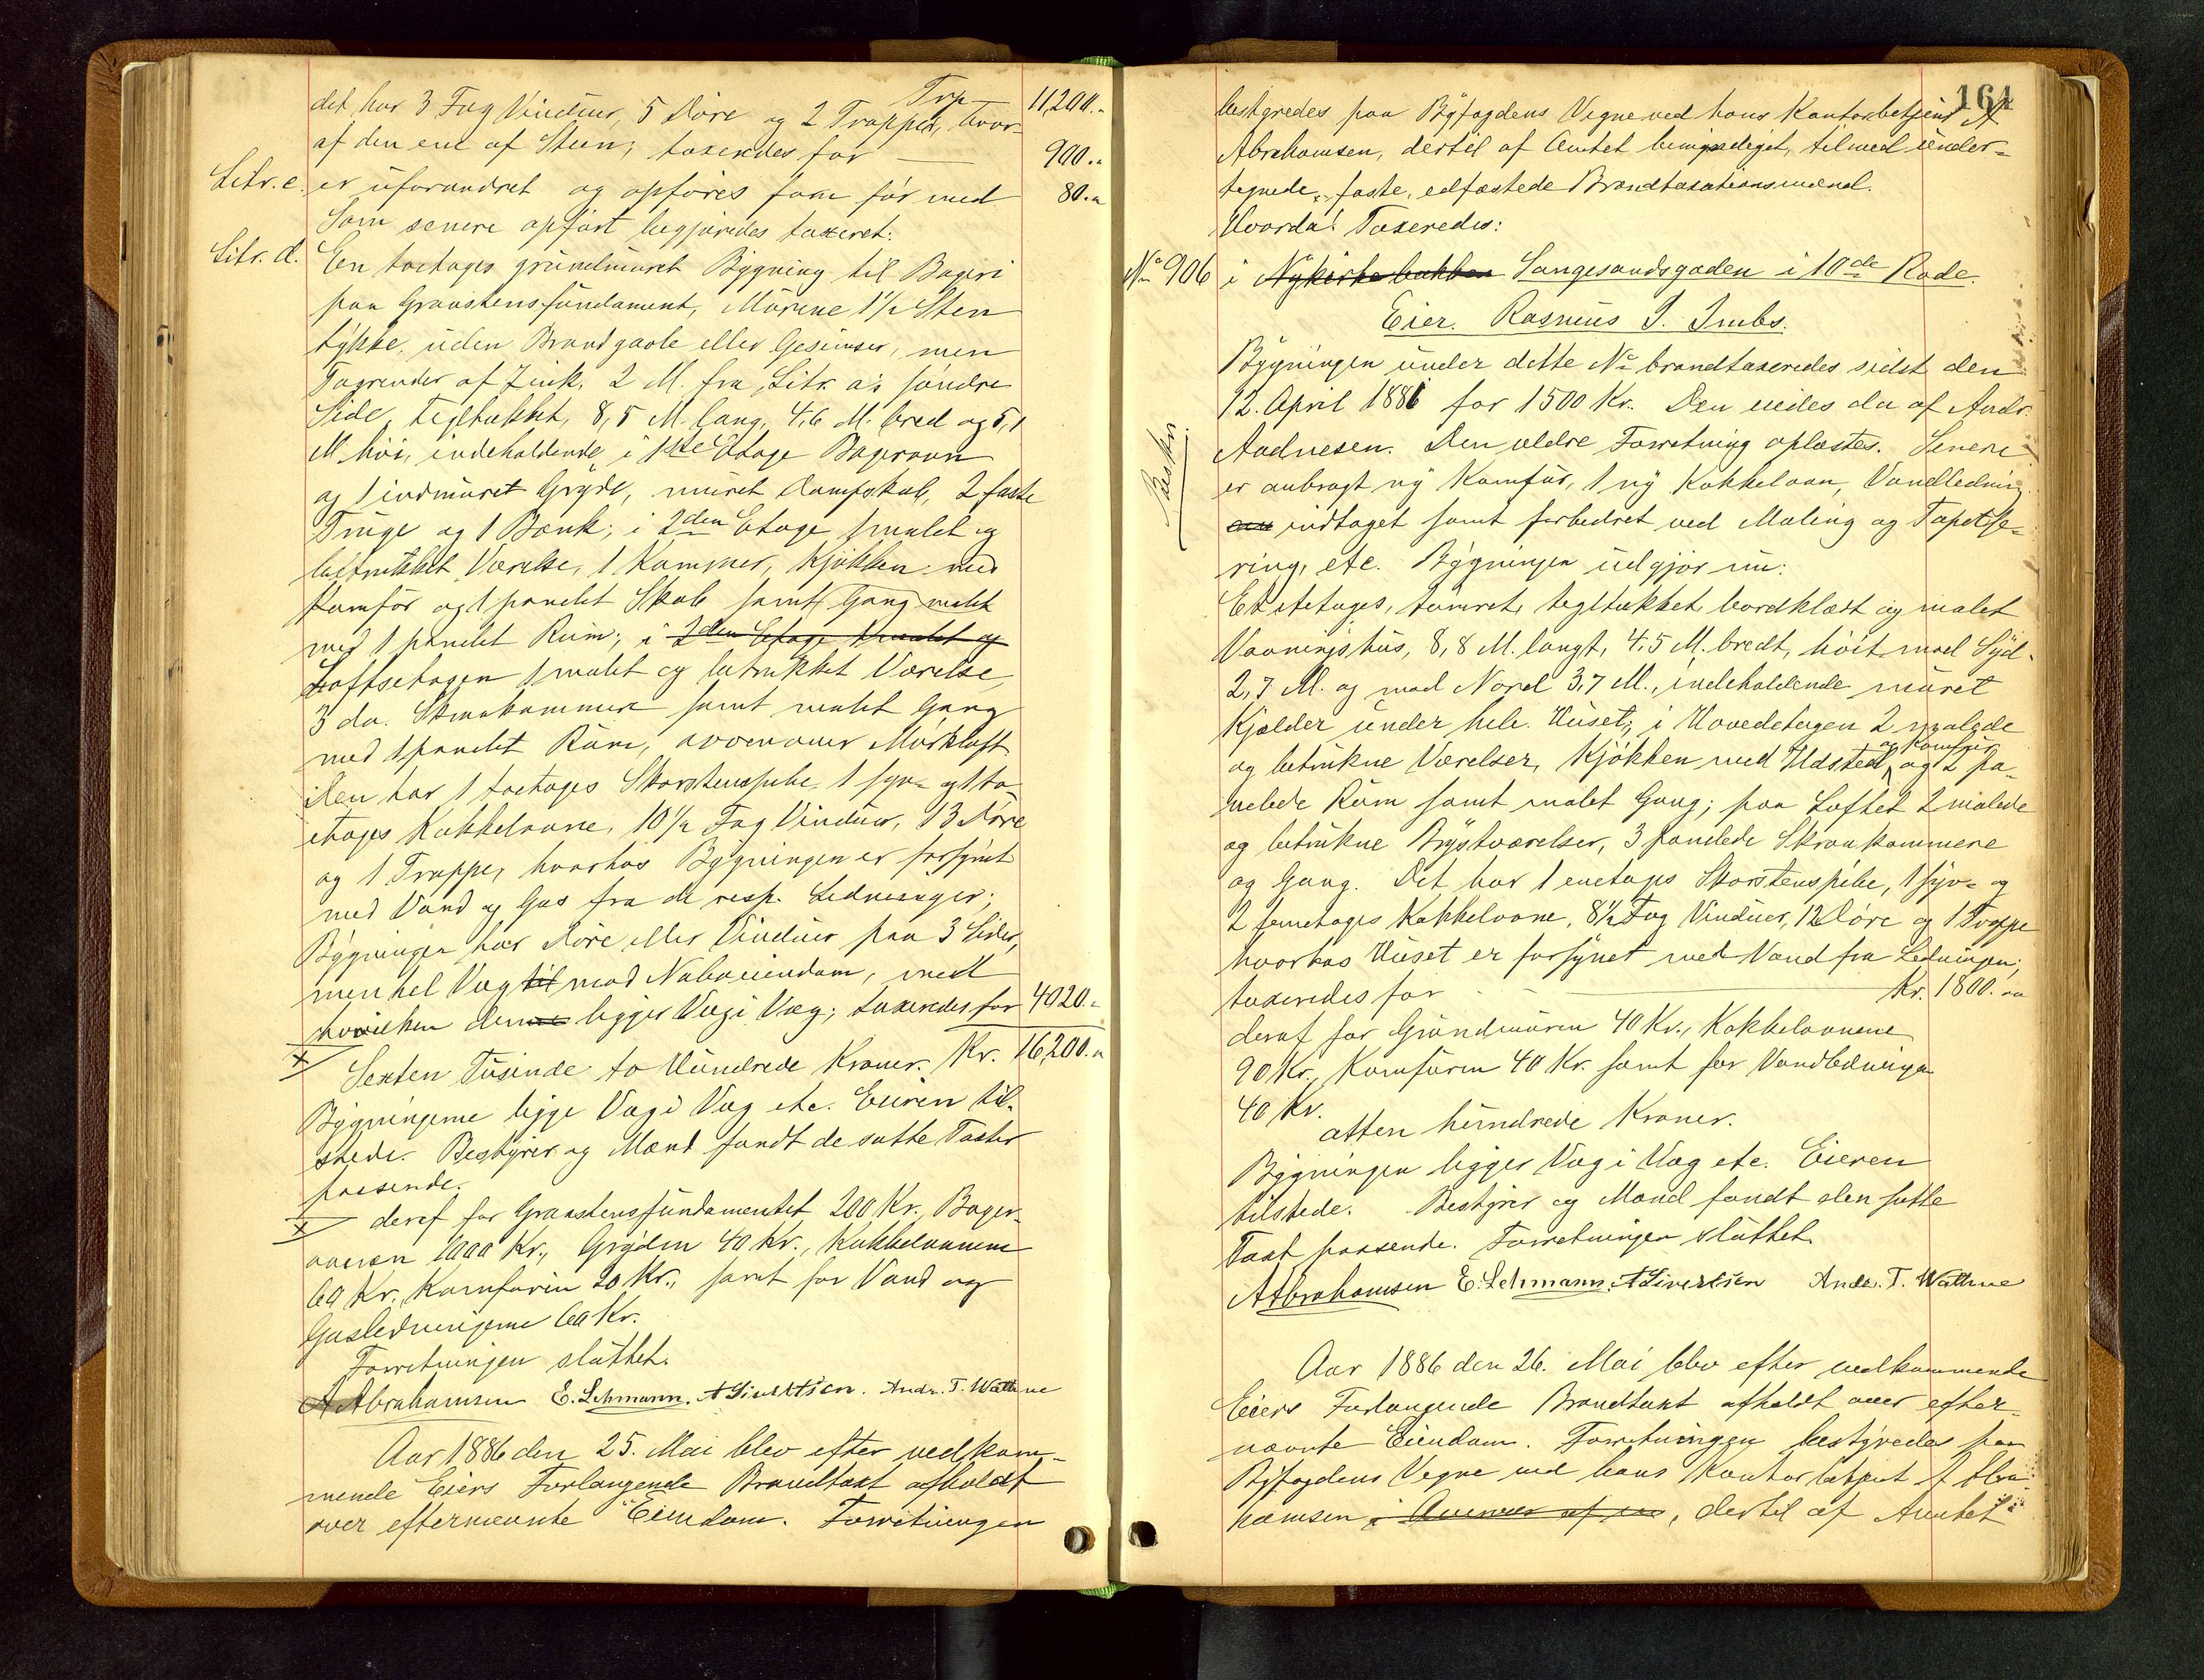 Trp 11,200.„
det har 3 Fag Vinduer, 5 Døre og 2 Trapper, hvor-
af den ene af Steen; taxeredes for — 900.„
Litr. c. er uforandret og opføres som før med 80.„
Som senere opført begjæredes taxeret:
Litr. d. En toetages grundmuret Bygning til Bageri
paa Graastensfundament, Murene 1 1/2 Sten
tykke, uden Brandgavle eller Gesimser, men
Tagrender af Zink, 2 M. fra Litr. a's søndre
Side, tegltækket, 8,5 M. lang, 4,6 M. bred og 5,1
M. høi, indeholdende i 1ste Etage Bagerovn
og 1 indmuret Gryde, muret Dampskab, 2 faste
Truge og 1 Bænk; i 2den Etage 1 malet og
betrukket Værelse, 1 Kammer, Kjøkken med
Komfur og 1 panelet Skab samt Gang malet
med 1 panelet Rum; i 2den Etage 1 malet og
Loftsetagen 1 malet og betrukket Værelse,
3 do. Skraakammere samt malet Gang
med 1 panelet Rum, ovenover Mørkloft.
Den har 1 toetages Skorstenspibe, 1 fyr- og 1 to-
etages Kakkelovne, 10 1/2 Fag Vinduer, 13 Døre
og 1 Trappe, hvorhos Bygningen er forsynet
med Vand og Gas fra de resp. Ledninger;
Bygningen har Døre eller Vinduer paa 3 Sider,
men hel Væg til mod Naboeiendom, med
hvilken denne ligger Væg i Væg; taxeredes for 4020.„
× Sexten Tusinde to Hundrede Kroner. Kr. 16,200.„
Bygningerne ligge Væg i Væg etc. Eieren til-
stede. Bestyrer og Mænd fandt de satte Taxter
passende.
× deraf for Graastensfundamentet 200 Kr., Bager-
ovnen 1000 Kr., Gryden 40 Kr., Kakkelovnene
60 Kr., Komfuren 20 Kr., samt for Vand og
Gasledningerne 60 Kr.
Forretningen sluttet.
A Abrahamsen E. Lehmann. A Sivertsen. Andr. T. Wathne
Aar 1886 den 25. Mai blev efter vedkom-
mende Eiers Forlangende Brandtaxt afholdt
over efternævnte Eiendom. Forretningen
164
bestyredes paa Byfogdens Vegne ved hans Kontorbetjent A
Abrahamsen, dertil af Amtet bemyndiget, tilmed under-
tegnede, faste, edfæstede Brandtaxationsmænd.
Hvorda! Taxeredes:
No 906 i Nykirkebakken Langesandsgaden i 10de Rode.
Eier. Rasmus I. Imbs.
Bygningen under dette No brandtaxeredes sidst den
12. April 1881 for 1500 Kr. Den eiedes da af Andr.
Andresen. Den ældre Forretning oplæstes. Senere
er anbragt ny Komfur, 1 ny Kakkelovn, Vandledning
indtaget samt forbedret ved Maling og Tapetse-
ring, etc. Bygningen udgjør nu:
Et etetages, tømret, tegltækket, bordklædt og malet
Vaaningshus, 8,8 M. langt, 4,5 M. bredt, høit mod Syd
2,7 M. og mod Nord 3,7 M., indeholdende muret
Kjælder under hele Huset; i Hovedetagen 2 malede
og betrukne Værelser, Kjøkken med Ildsted og Komfur og 2 pa-
nelede Rum samt malet Gang; paa Loftet 2 malede
og betrukne Brystværelser, 3 panelede Skraakammere
og Gang. Det har 1 enetages Skorstenspibe, 1 fyr- og
2 femetages Kakkelovne, 8 1/2 Fag Vinduer, 12 Døre og 1 Trappe
hvorhos Huset er forsynet med Vand fra Ledningen;
taxeredes for — Kr. 1800.„
deraf for Grundmuren 40 Kr., Kakkelovnene
90 Kr., Komfuren 40 Kr. samt for Vandledningen
40 Kr.
atten hundrede Kroner.
Bygningen ligger Væg i Væg etc. Eieren
tilstede. Bestyrer og Mænd fandt den satte
Taxt passende. Forretningen sluttet.
A Abrahamsen E. Lehmann. A Sivertsen Andr. T. Wathne
Aar 1886 den 26. Mai blev efter vedkommende
Eiers Forlangende Brandtaxt afholdt over efter-
nævnte Eiendom. Forretningen bestyredes paa
Byfogdens Vegne ved hans Kontorbetjent A Abra-
hamsen, dertil af Amtet